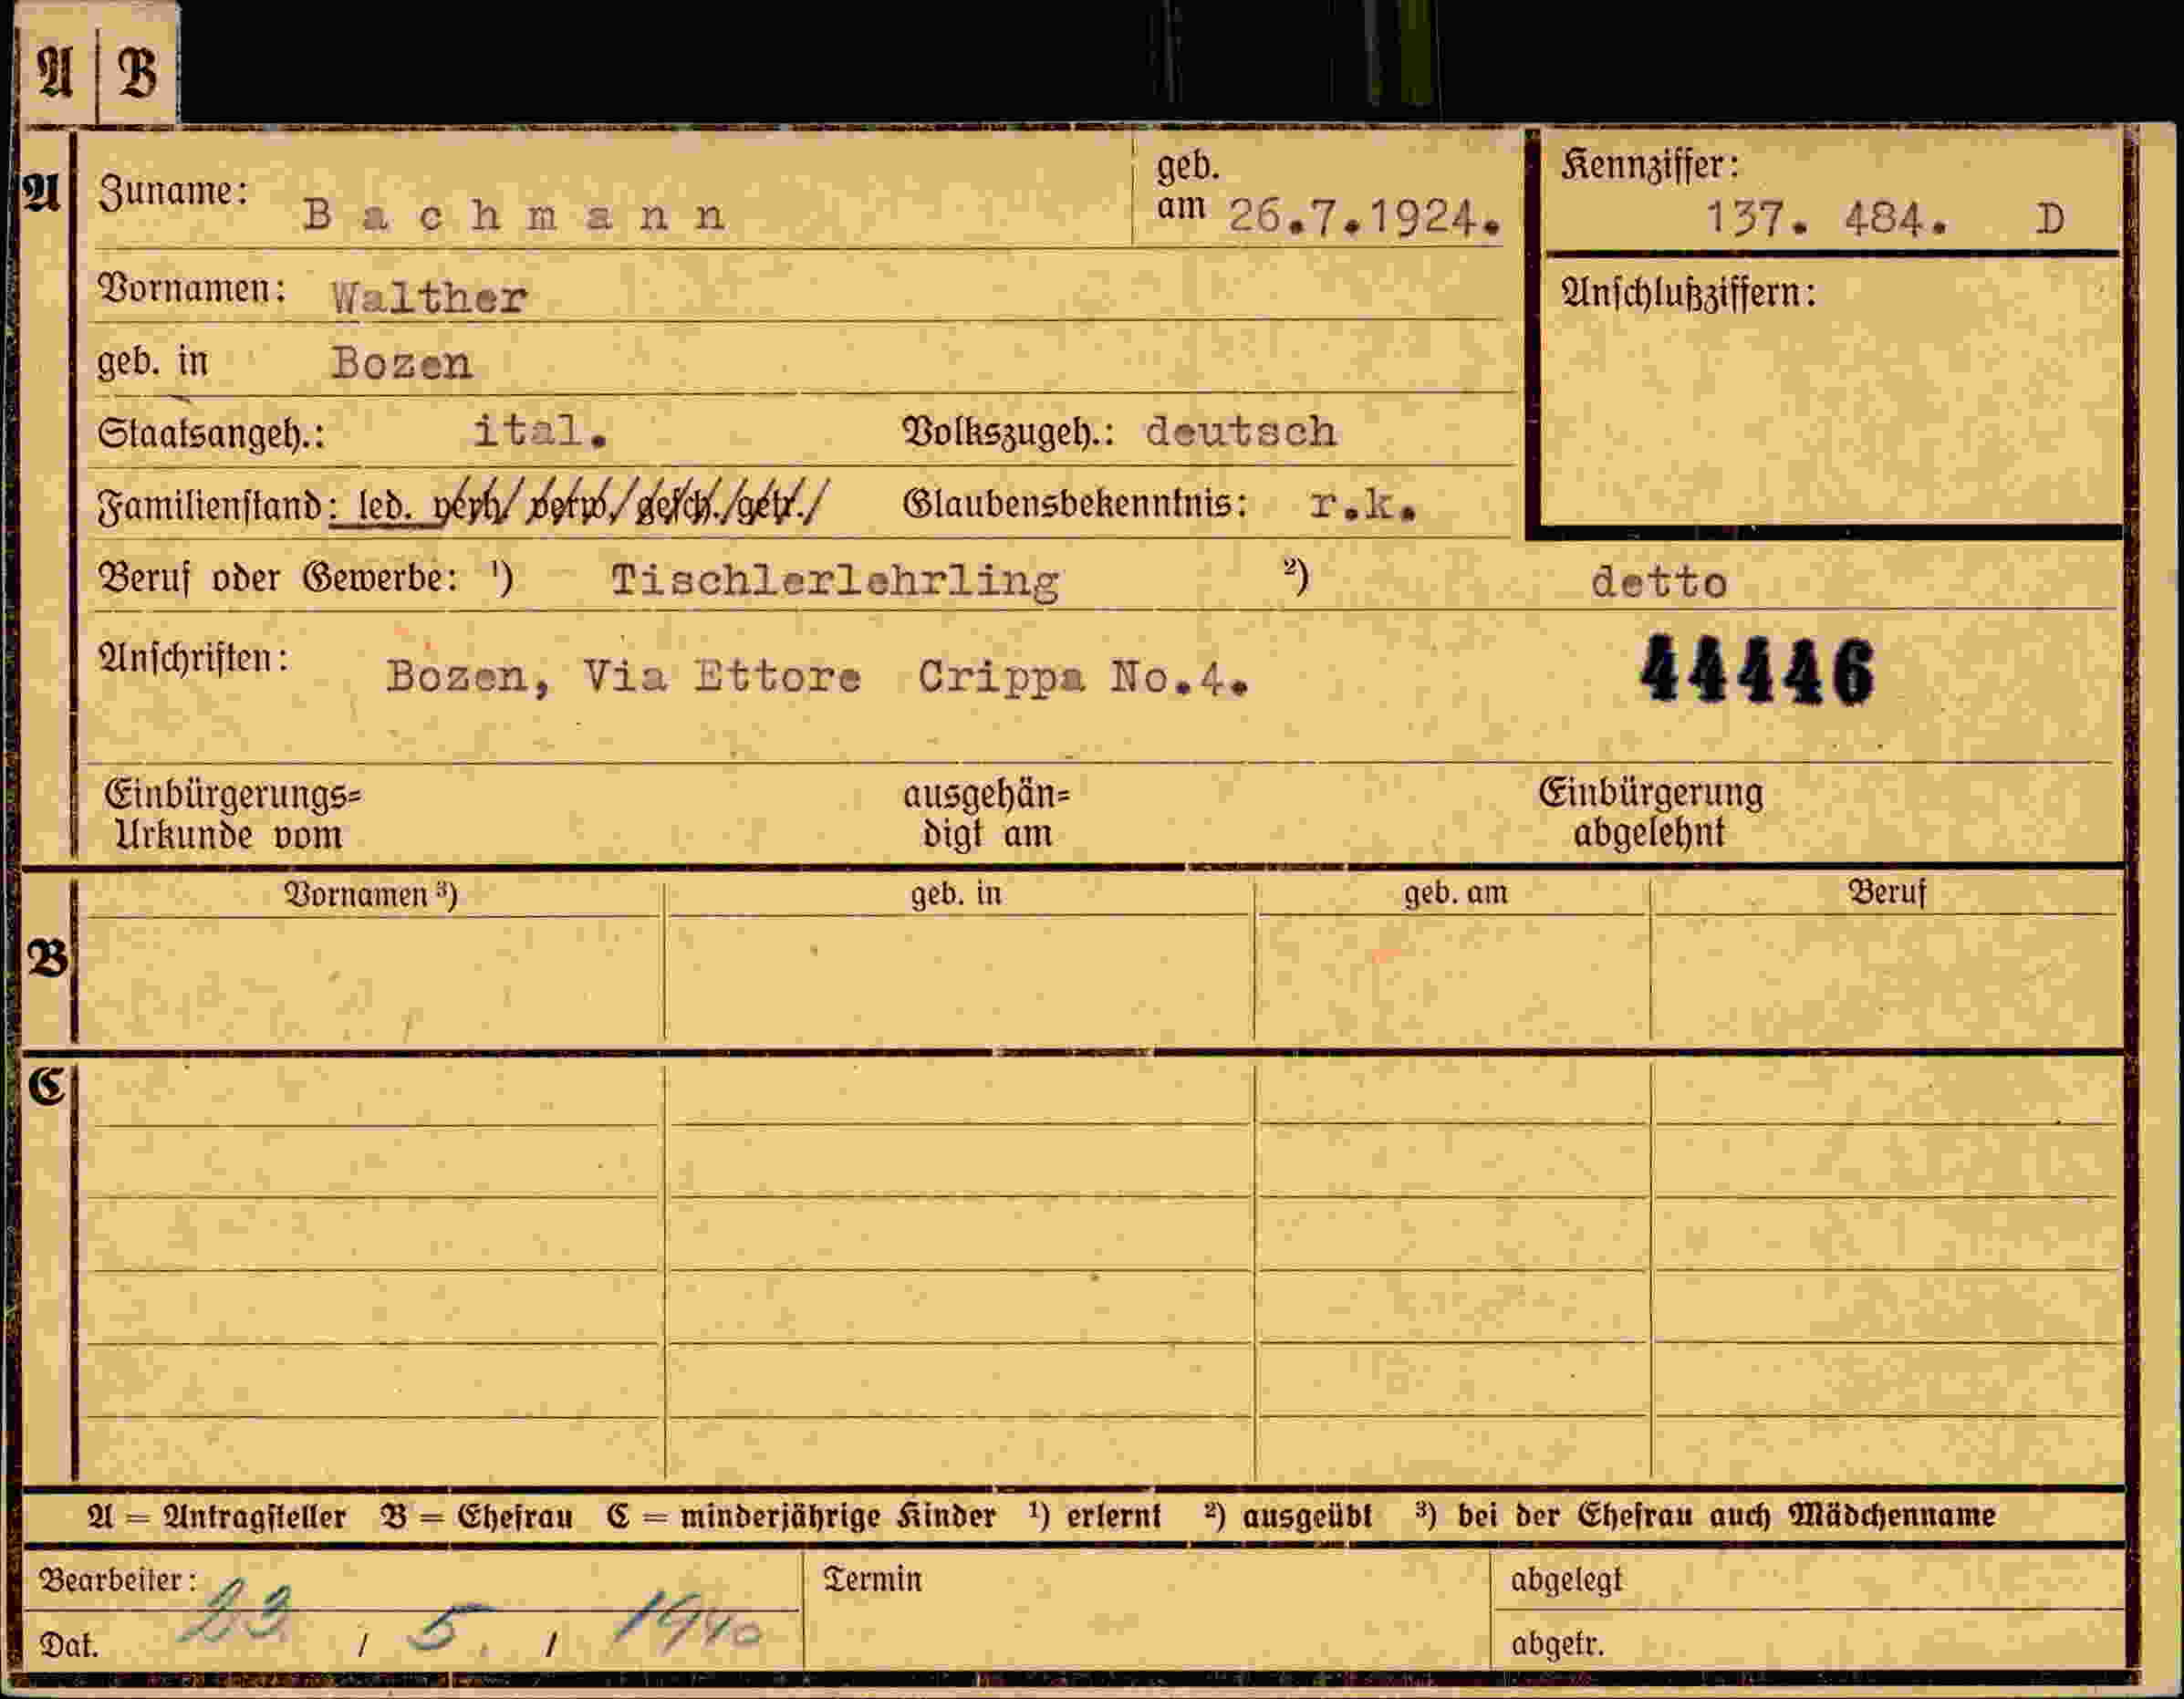 A | B
A
Zuname: Bachmann geb. am 26.7.1924. Kennziffer: 137. 484. D
Vornamen: Walther Anschlußziffern:
geb. in Bozen
Staatsangeh.: ital. Volkszugeh.: deutsch
Familienstand: led. verh/ verw./gesch./getr./ Glaubensbekenntnis: r.k.
Beruf oder Gewerbe: ¹) Tischlerlehrling ²) detto
Anschriften: Bozen, Via Ettore Crippa No.4. 44446
Einbürgerungs- ausgehän- Einbürgerung
Urkunde vom digt am abgelehnt
Vornamen ³) geb. in geb. am Beruf
B
C
A = Antragsteller B = Ehefrau C = minderjährige Kinder ¹) erlernt ²) ausgeübt ³) bei der Ehefrau auch Mädchenname
Bearbeiter: Termin abgelegt
Dat. 23 / 5. / 1940 abgetr.